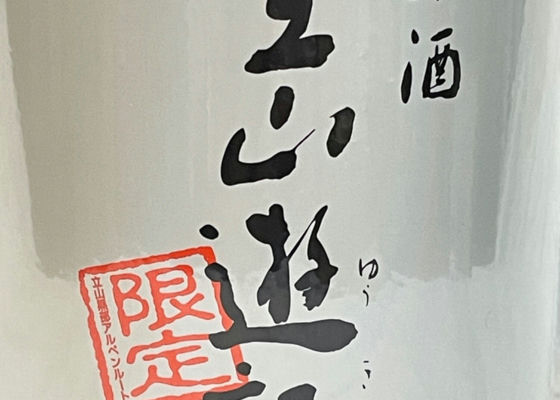 酒
立山遊
ゆうき
限定
立山黒部アルペンルート